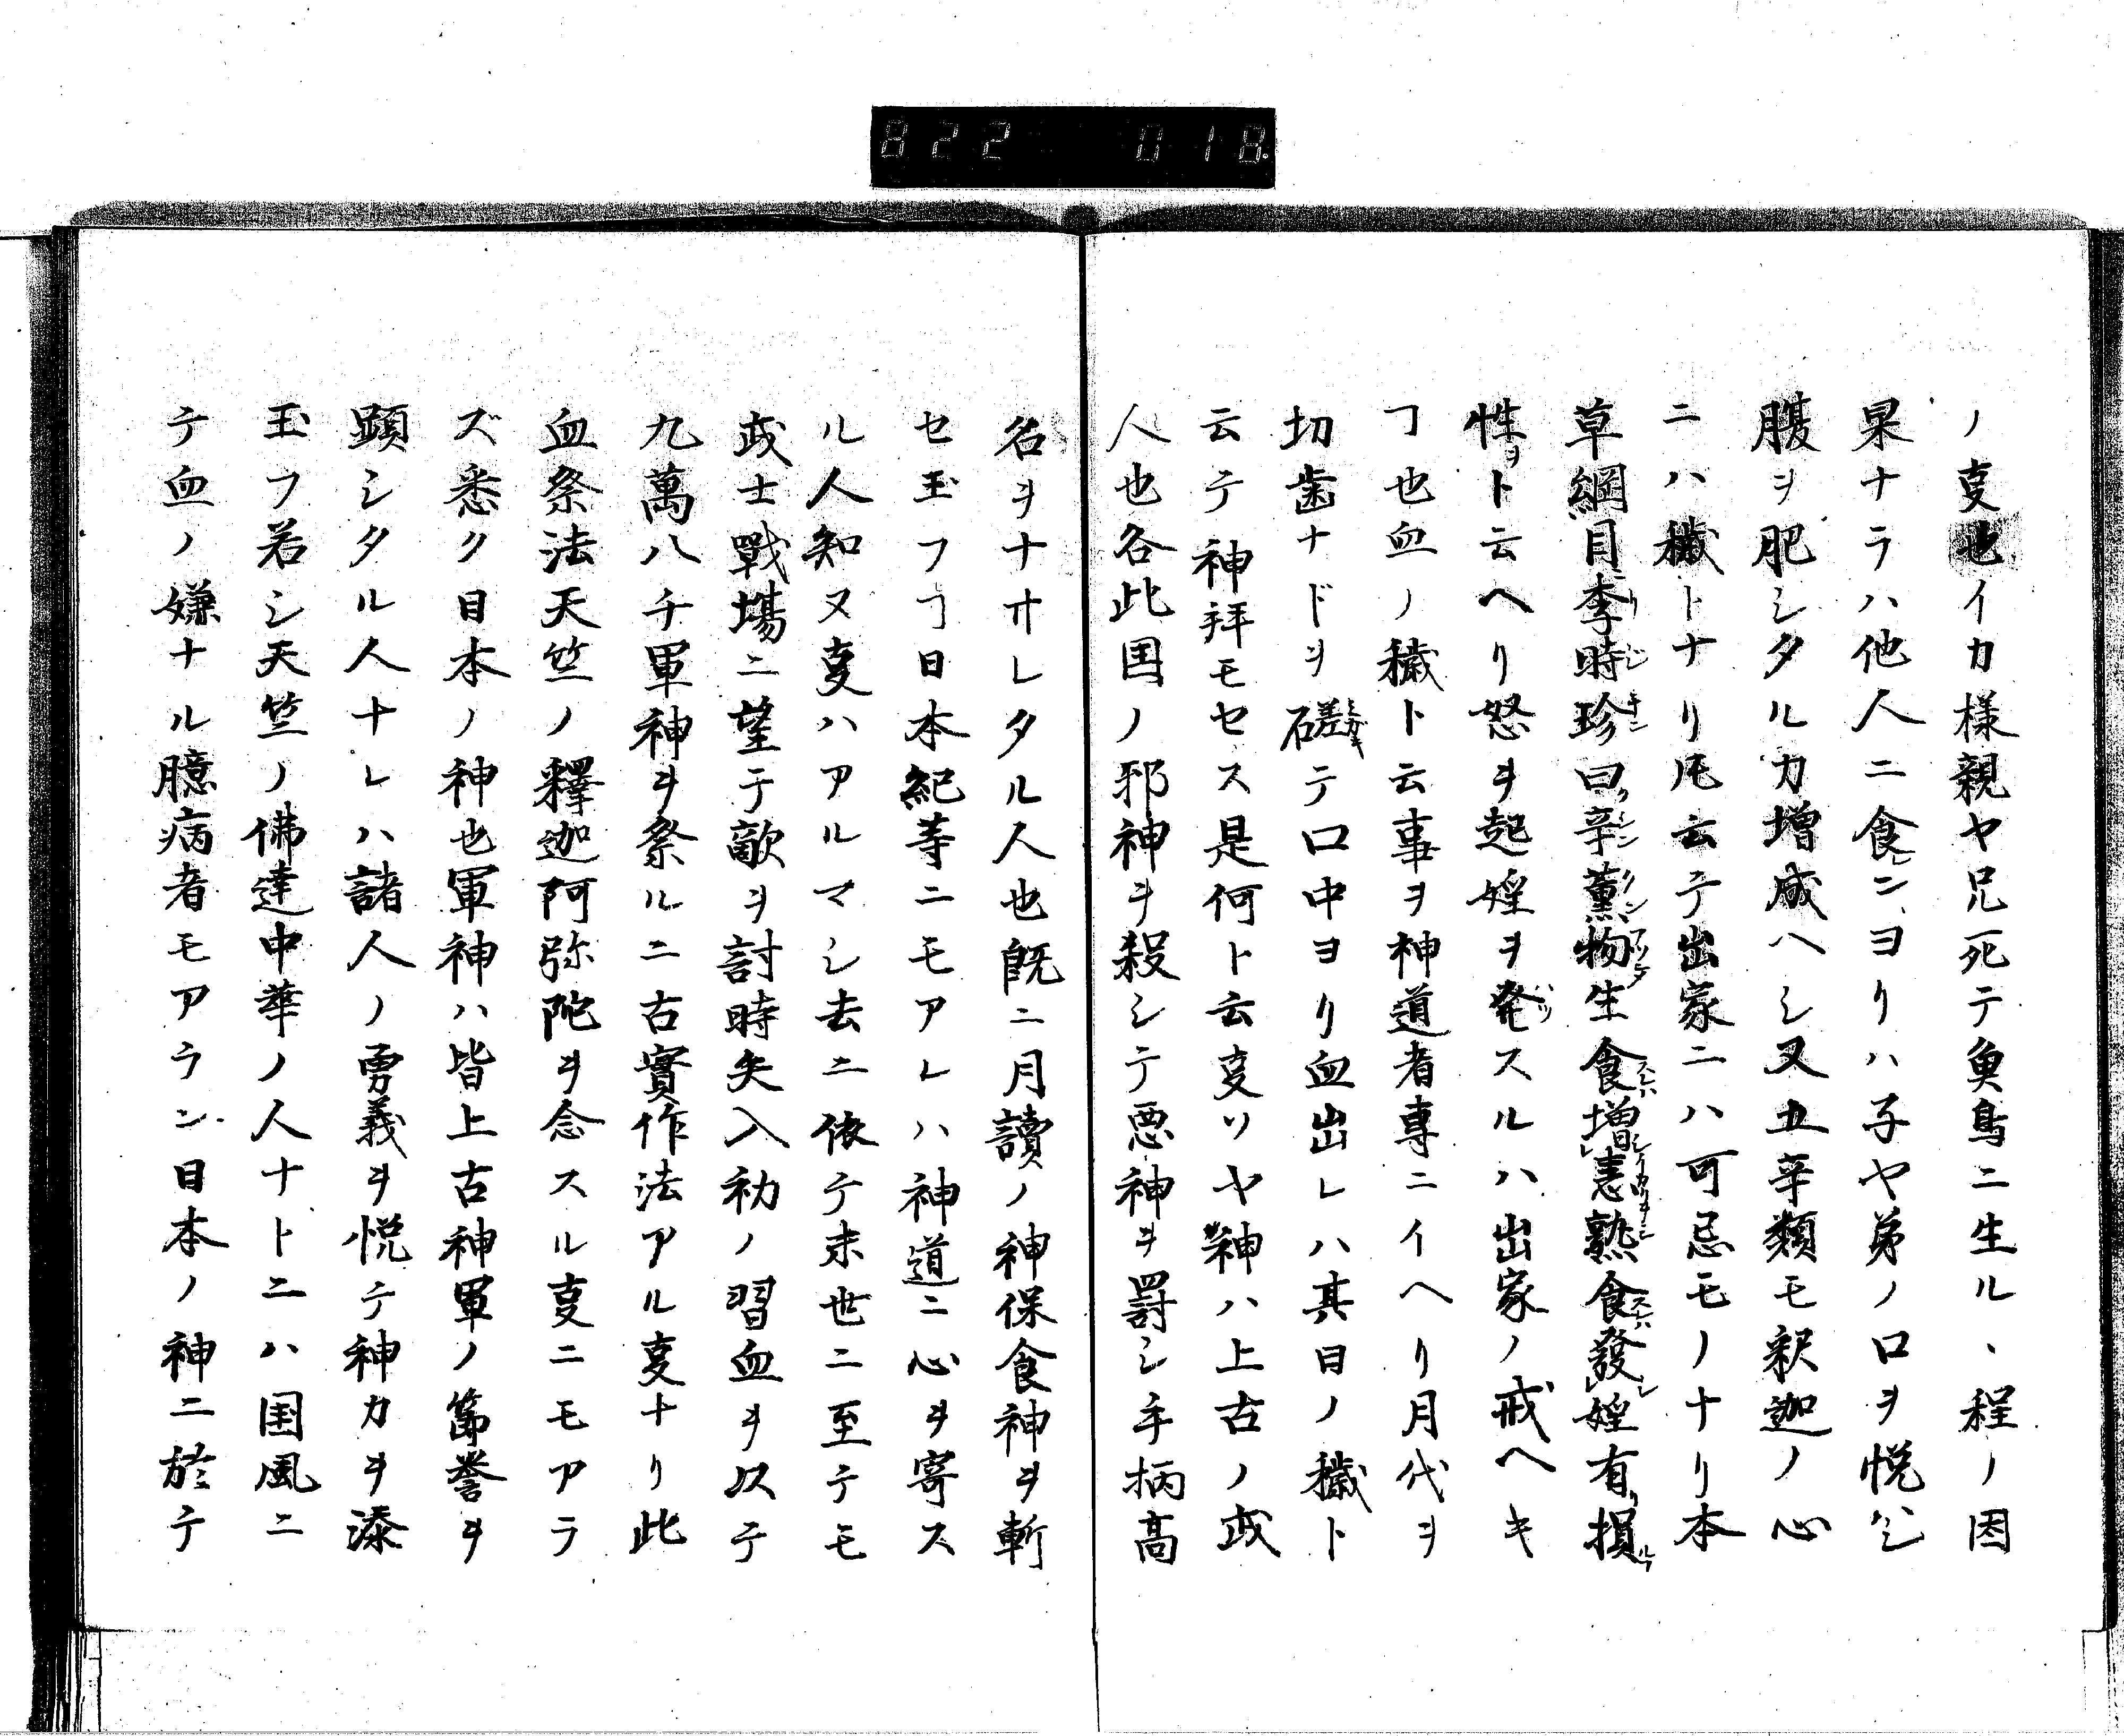 822 018.
ノ叓也イカ様親ヤ兄死テ魚鳥ニ生ル、程ノ因
果ナラハ他人ニ食ンヨリハ子ヤ弟ノ口ヲ悦ハシ
腹ヲ肥シタルカ増成ヘシ又五辛類モ釈迦ノ心
ニハ穢トナリ凡云テ出家ニハ可忌モノナリ本
草綱目李時珍曰辛薫物生食増恚熟食發婬有損
性ヲト云ヘリ怒ヲ起婬ヲ発スルハ出家ノ戒ヘキ
ヿ也血ノ穢ト云事ヲ神道者専ニイヘリ月代ヲ
切歯ナドヲ磋テ口中ヨリ血出レハ其日ノ穢ト
云テ神拜モセス是何ト云叓ソヤ神ハ上古ノ武
人也各此国ノ邪神ヲ殺シテ悪神ヲ罸シ手柄高
名ヲナオレタル人也既ニ月讀ノ神保食神ヲ斬
セ玉フヿ日本紀等ニモアレハ神道ニ心ヲ寄ス
ル人知ヌ叓ハアルマシ去ニ依テ末世ニ至テモ
武士戰場ニ望テ敵ヲ討時矢入初ノ習血ヲ以テ
九萬八千軍神ヲ祭ルニ古實作法アル叓ナリ此
血祭法天竺ノ釋迦阿弥陀ヲ念スル叓ニモアラ
ズ悉ク日本ノ神也軍神ハ皆上古神軍ノ節誉ヲ
顕シタル人ナレハ諸人ノ勇義ヲ悦テ神カヲ添
玉フ若シ天竺ノ佛達中華ノ人ナトニハ国風ニ
テ血ノ嫌ナル臆病者モアラン日本ノ神ニ於テ